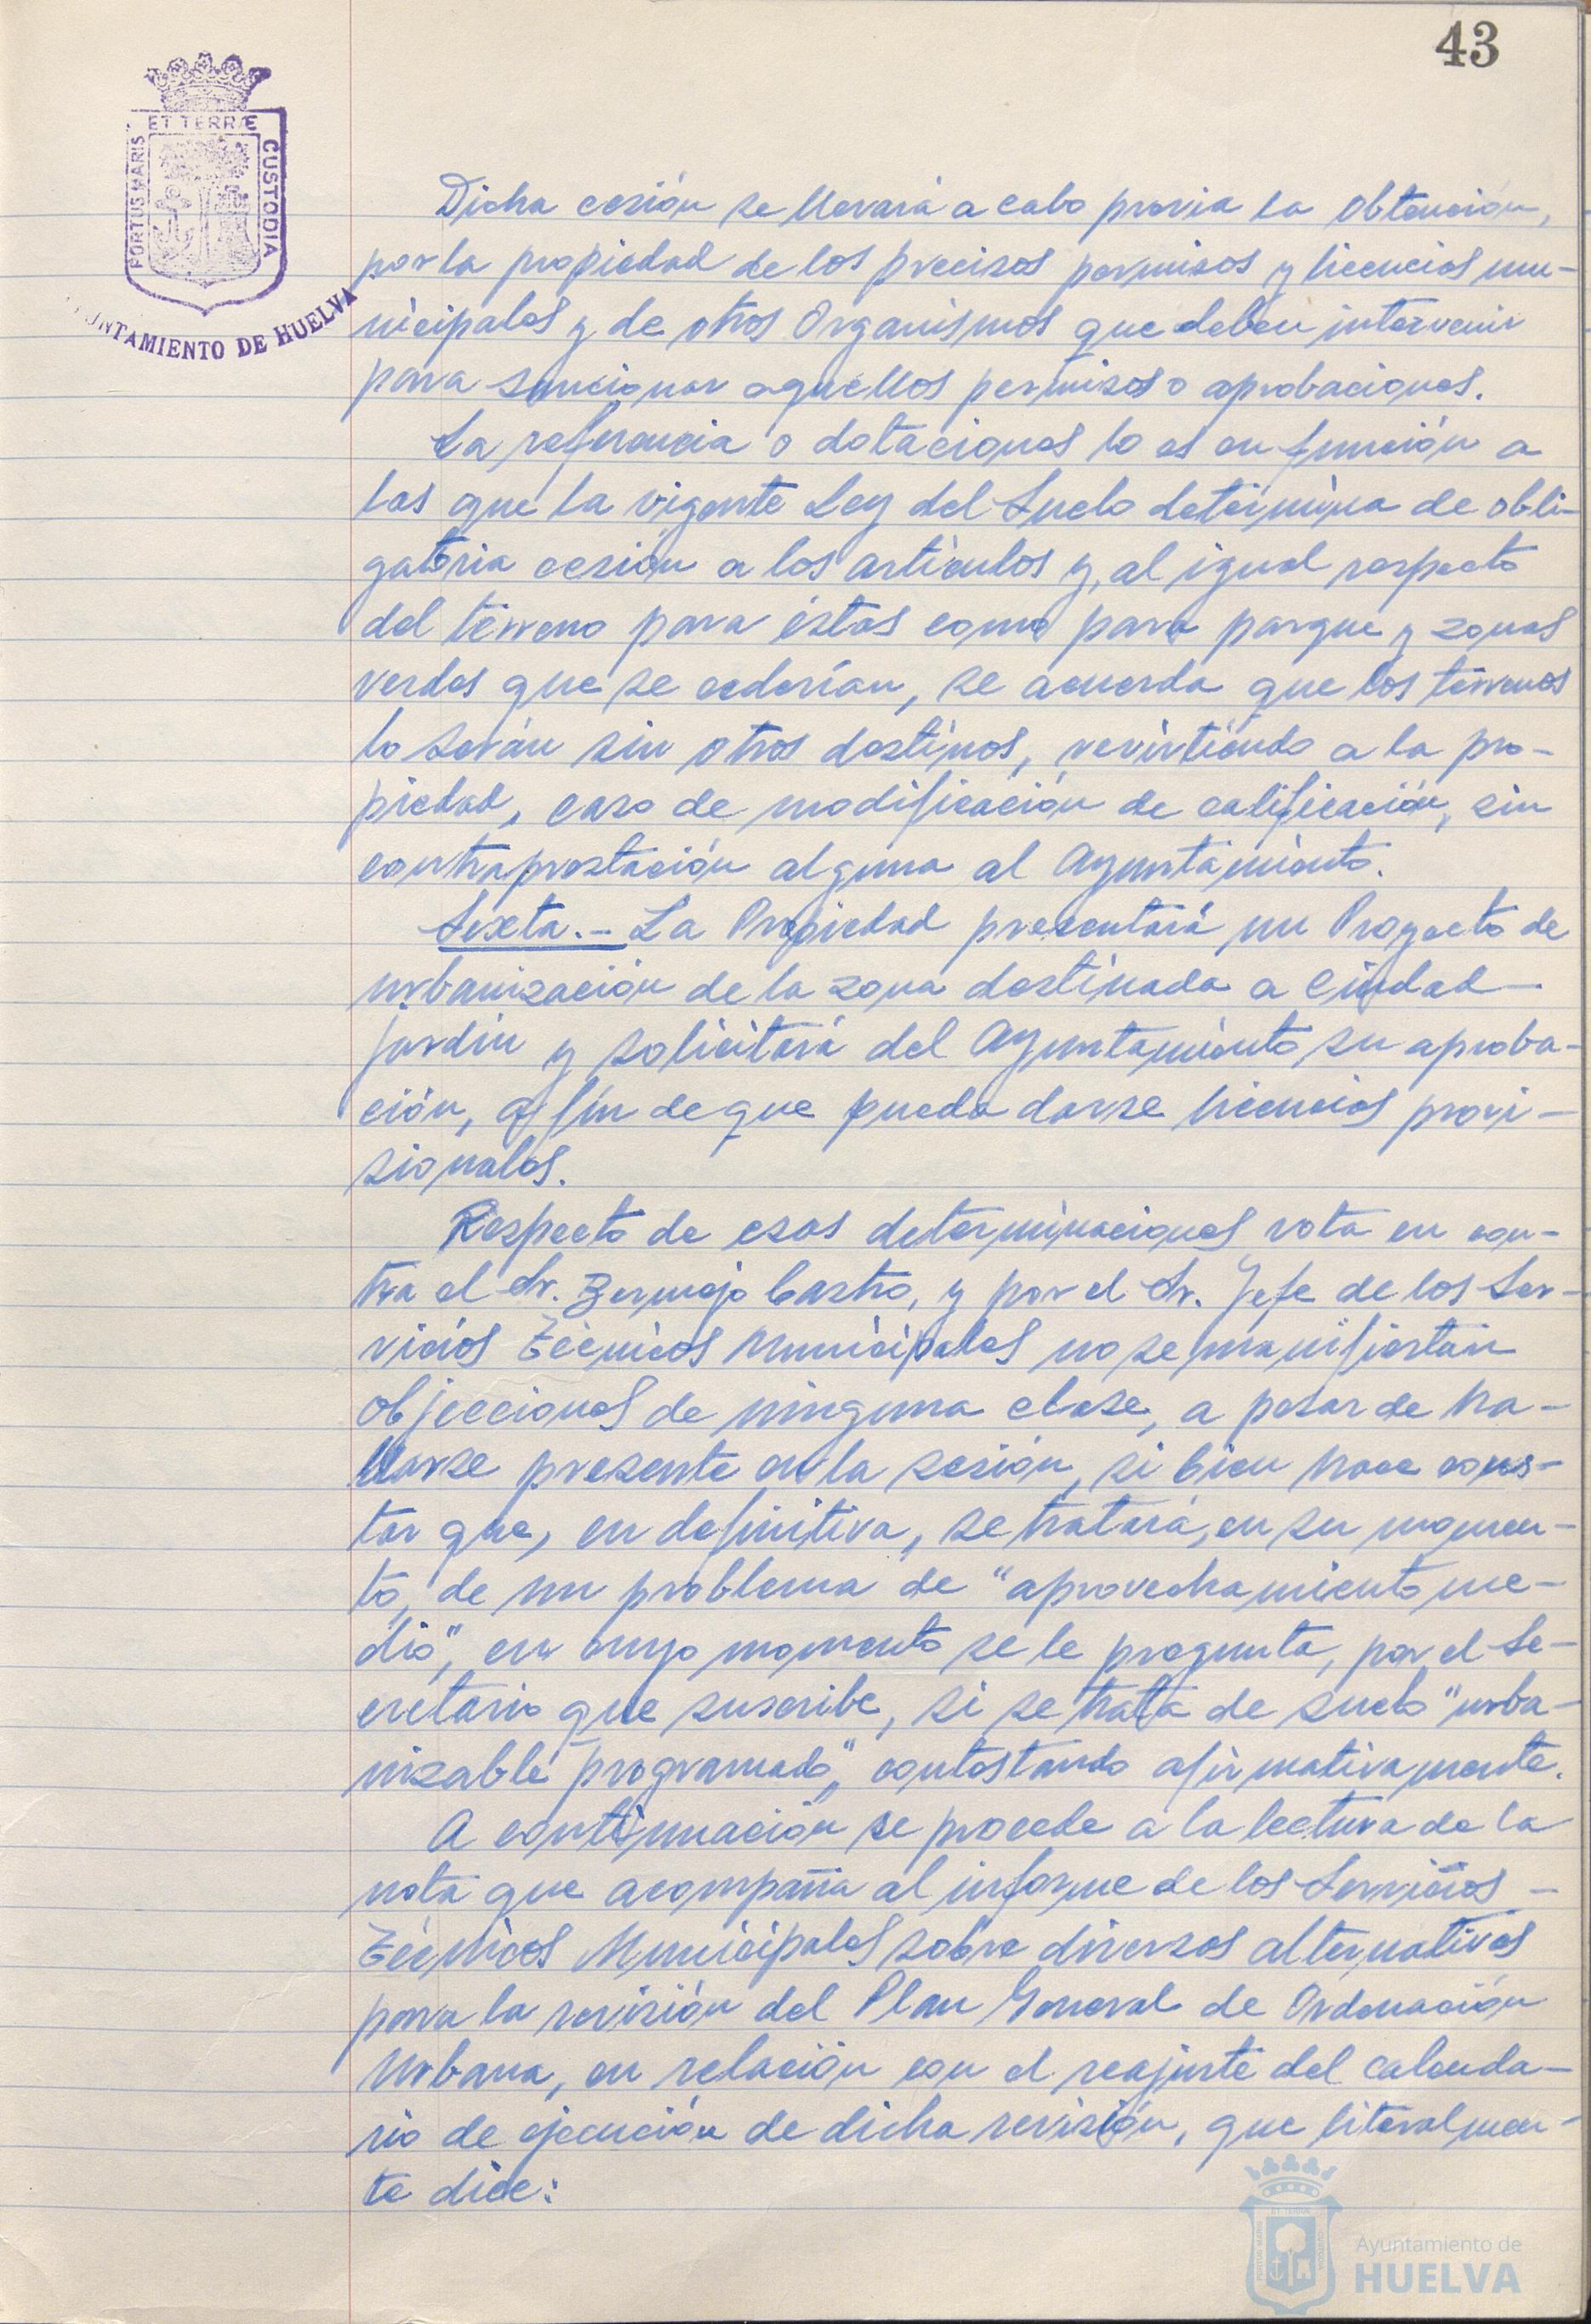 43
ET TERRÆ
PORTUS MARIS
CUSTODIA
UNTAMIENTO DE HUELVA
Dicha cesión se llevará a cabo previa la obtención,
por la propiedad de los precisos permisos y licencias mu-
nicipales y de otros Organismos que deben intervenir
para sancionar aquellos permisos o aprobaciones.
La referencia o dotaciones lo es en función a
las que la vigente Ley del Suelo determina de obli-
gatoria cesión a los artículos y, al igual respecto
del terreno para éstas como para parque y zonas
verdes que se cederían, se acuerda que los terrenos
lo serán sin otros destinos, revirtiendo a la pro-
piedad, caso de modificación de calificación, sin
contraprestación alguna al Ayuntamiento.
Sexta.- La Propiedad presentará un Proyecto de
urbanización de la zona destinada a Ciudad-
jardín y solicitará del Ayuntamiento su aproba-
ción, a fín de que pueda darse licencias provi-
sionales.
Respecto de esas determinaciones vota en con-
tra el Sr. Bermejo Castro, y por el Sr. Jefe de los Ser-
vicios Técnicos Municipales no se manifiestan
objecciones de ninguna clase, a pesar de ha-
llarse presente en la sesión, si bien hace cons-
tar que, en definitiva, se tratará, en su momen-
to, de un problema de "aprovechamiento me-
dio", en cuyo momento se le pregunta, por el Se-
cretario que suscribe, si se trata de suelo "urba-
nizable programado", contestando afirmativamente.
A continuación se procede a la lectura de la
nota que acompaña al informe de los Servicios -
Técnicos Municipales sobre diversas alternativas
para la revisión del Plan General de Ordenación
Urbana, en relación con el reajuste del calenda-
rio de ejecución de dicha revisión, que literalmen-
te dice:
Ayuntamiento de
HUELVA